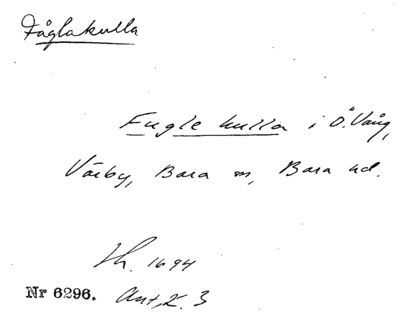 Fåglakulla
Fugle kulla i Ö. Vång,
Värby, Bara sn, Bara hd.
Lh. 1694
Nr 6296. Ant, K. 3